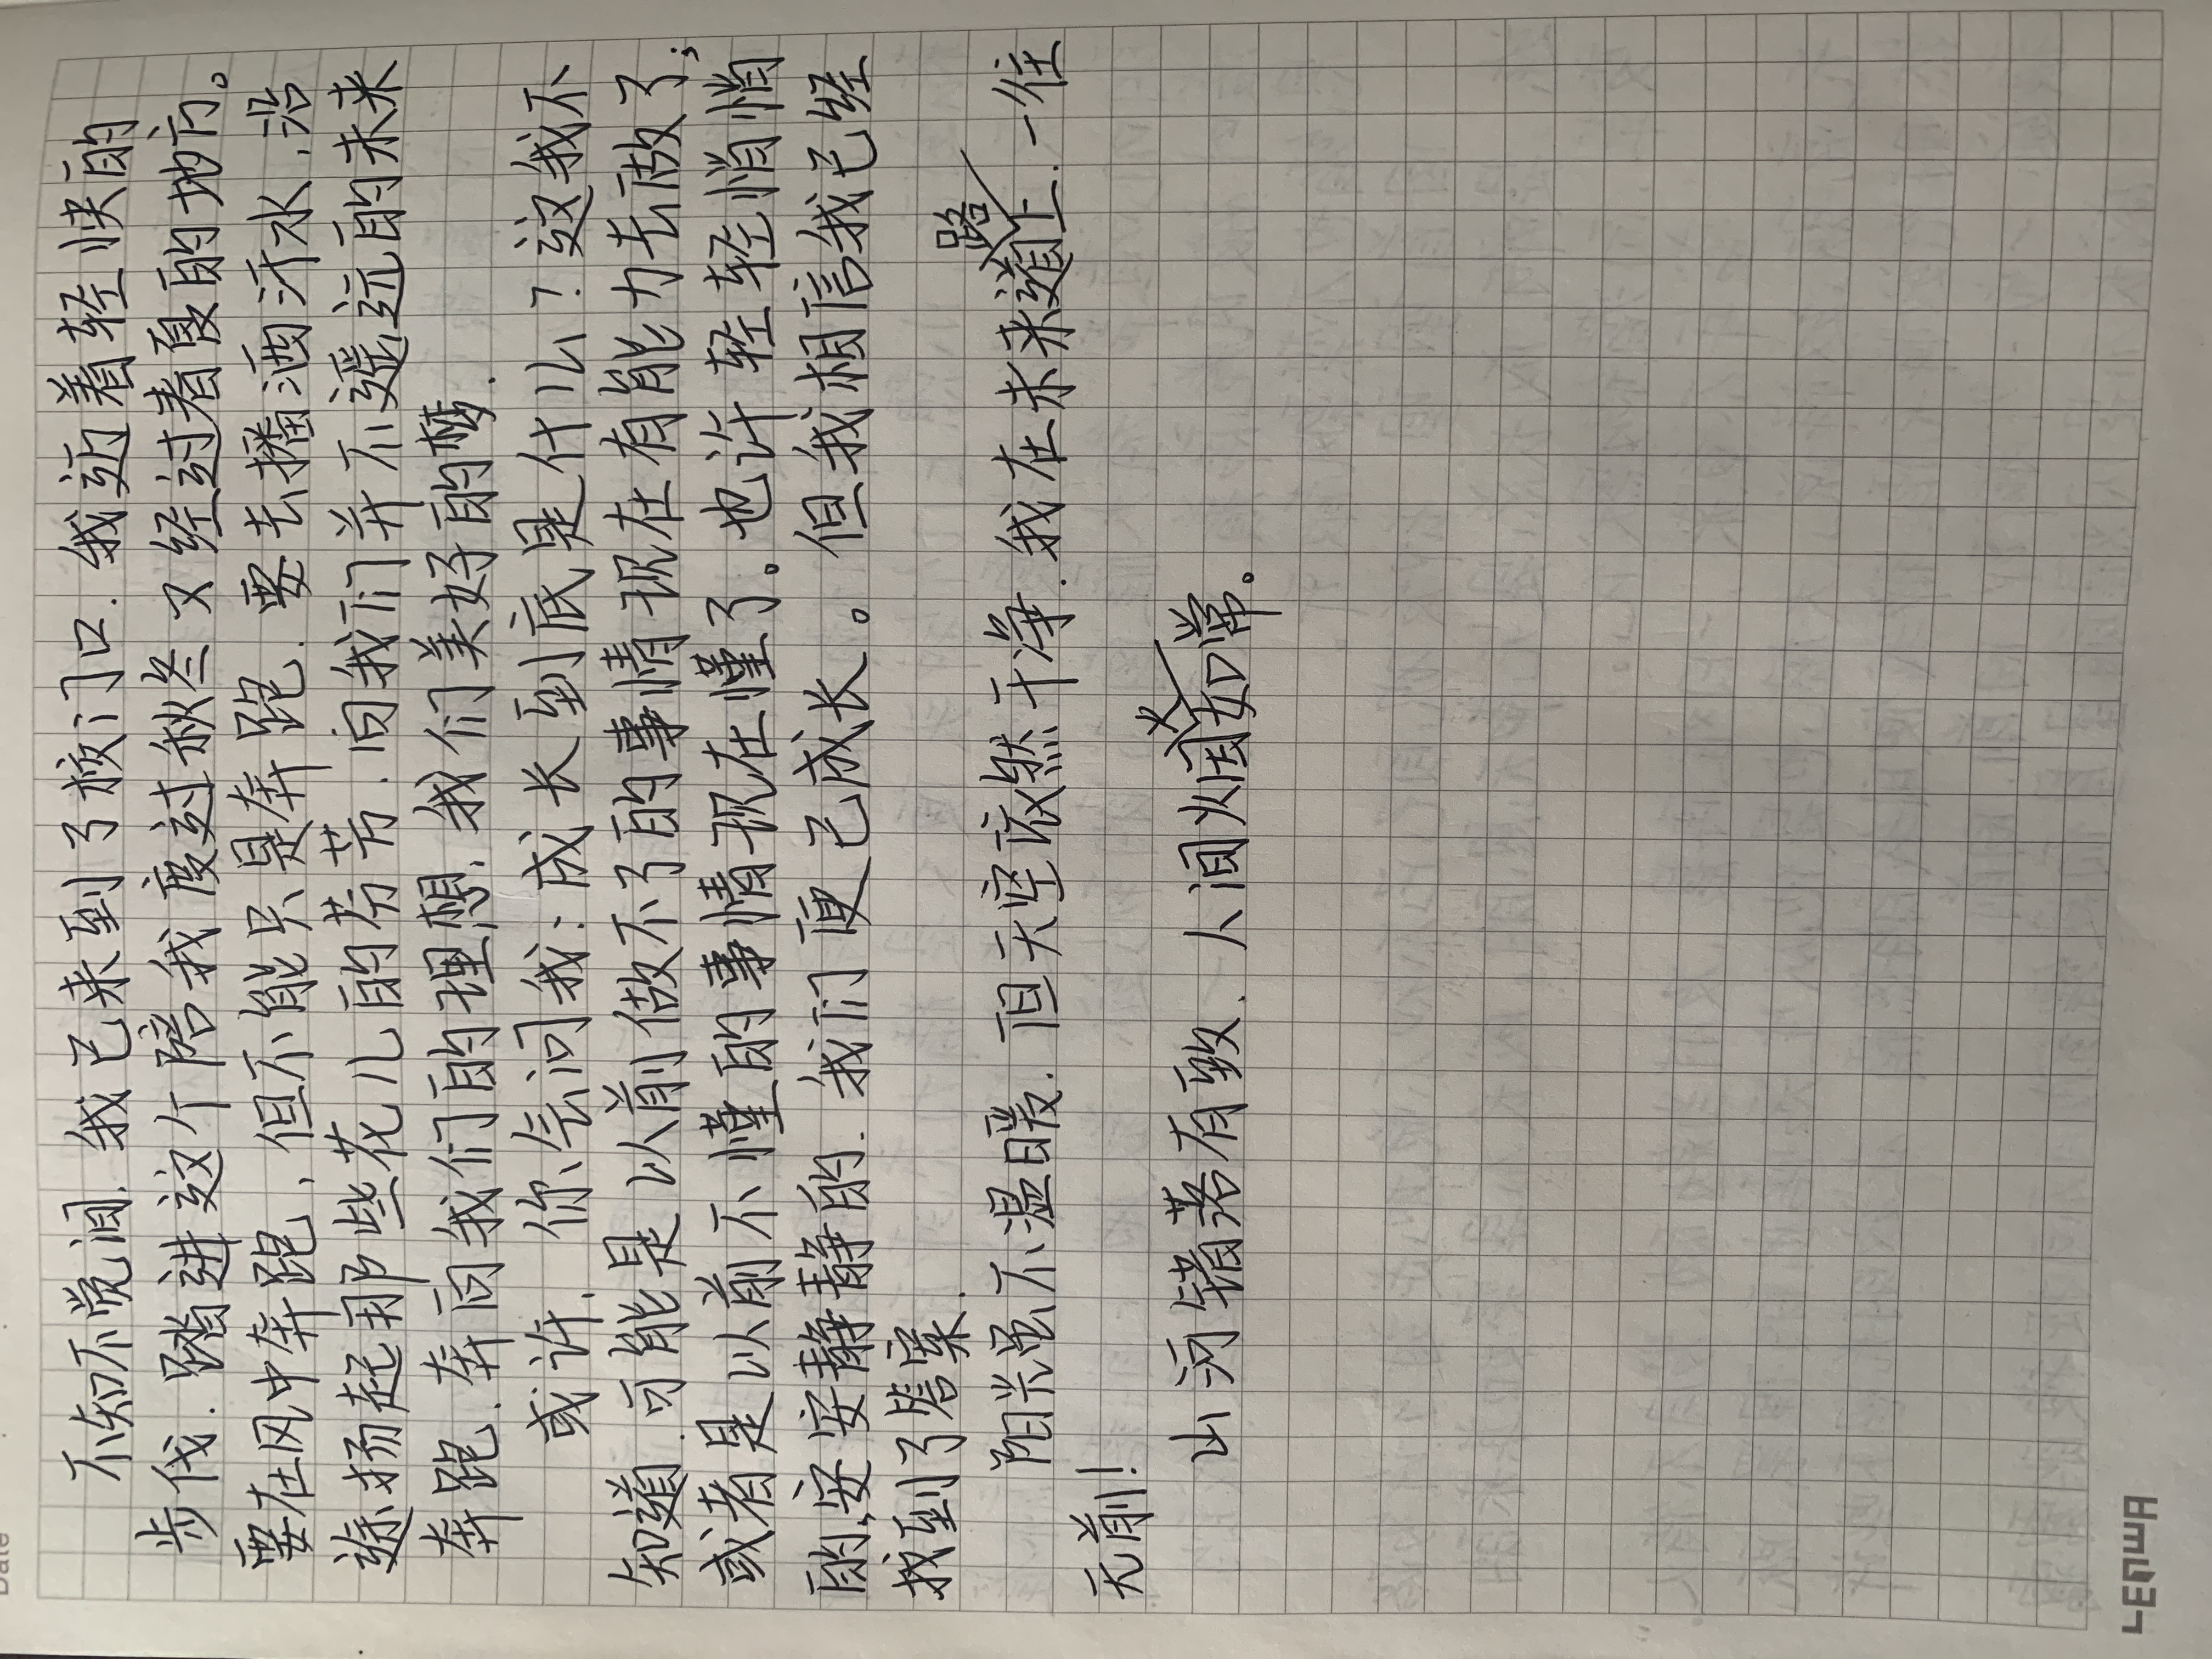 不知不觉间，我已来到了校门口，我迈着轻快的
步伐，踏进这个陪我度过秋冬又经过春夏的地方。
要在风中奔跑，但不能只是奔跑，要去播洒汗水，沿
途扬起那些花儿的芬芳，向我们并不遥远的未来
奔跑，奔向我们的理想，我们美好的梦。
或许，你会问我：成长到底是什么？这我不
知道，可能是以前做不了的事情现在有能力去做了；
或者是以前不懂的事情现在懂了。也许轻轻悄悄
的，安安静静的，我们便已成长。但我相信我已经
找到了答案。
阳光总不温暖，但天空依然干净，我在未来道路上，一往
无前！
山河错落有致，人间烟火如常。
LEDWA
Date